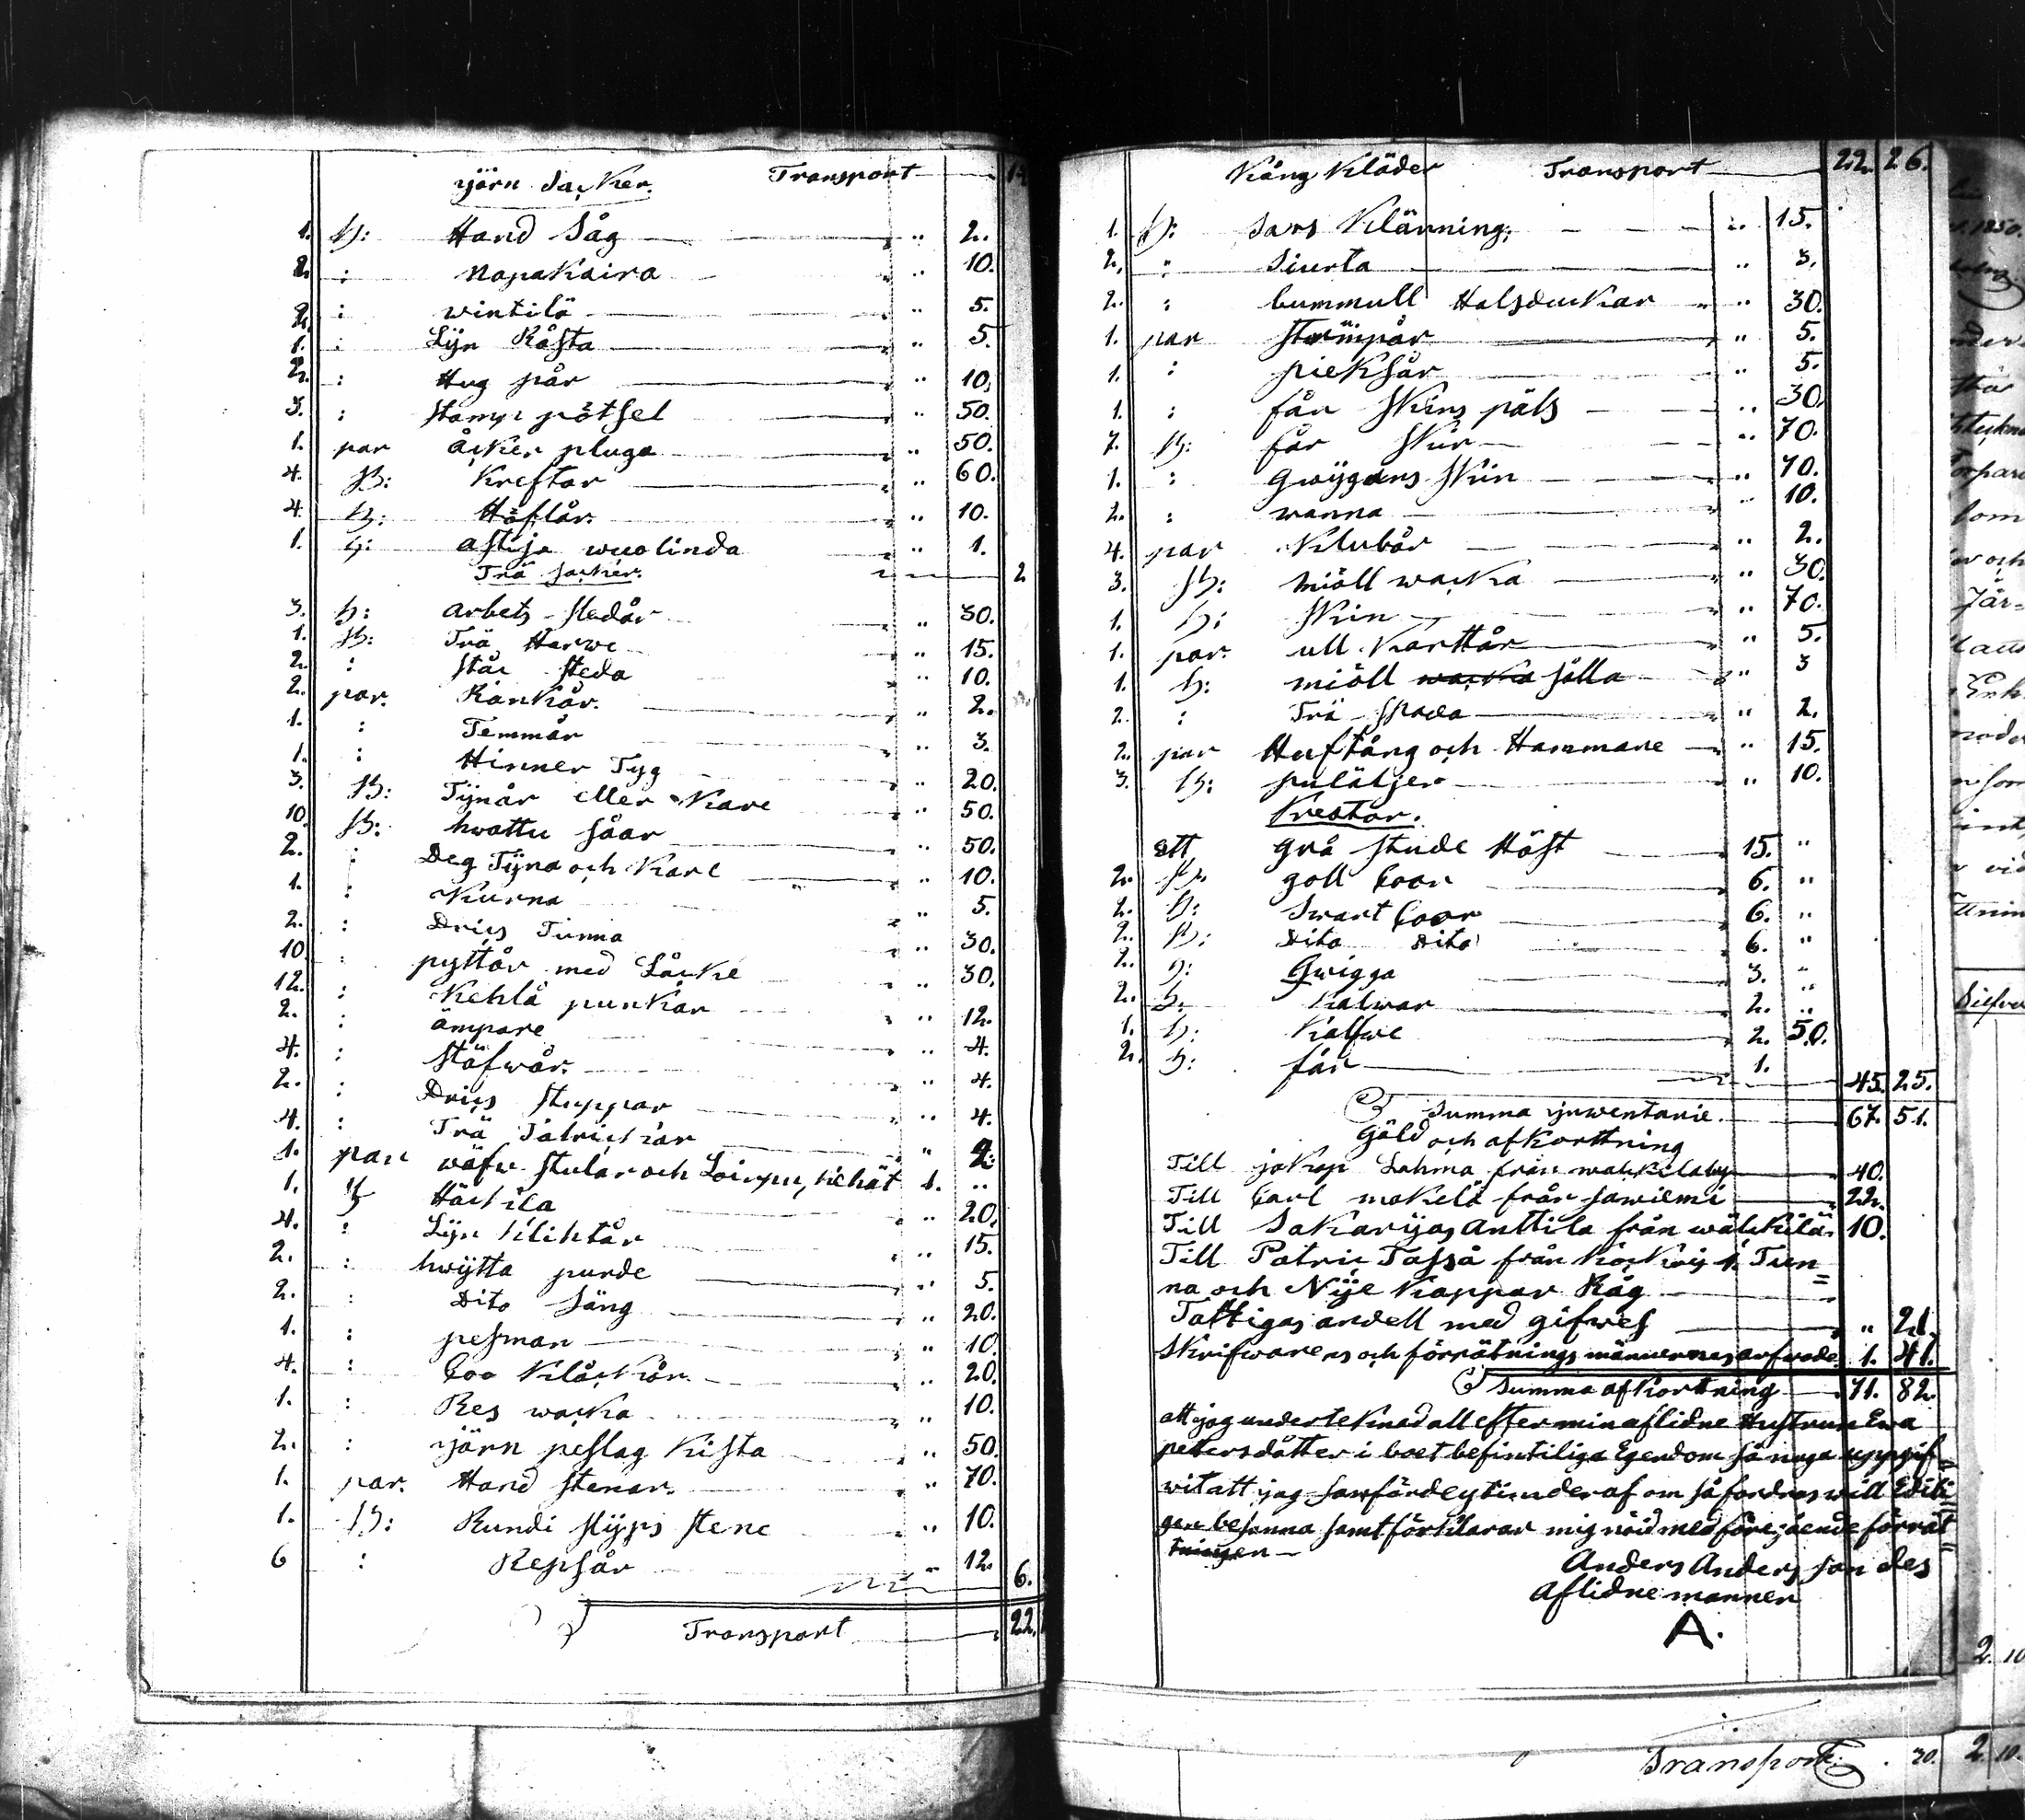 yjärn Sacker. Transport
1. st: Hand Såg " 2.
2. : Napakaira " 10.
2. : wintilä " 5.
1. : Lijn Råsta " 5.
2. : Hug pår " 10.
3. : Stamp pötsel " 50.
1. par Åcker pluga " 50.
4. st: Kreftar " 60.
4. st: Höflår. " 10.
1. st: astija wuolinda " 1.
Trä Sacker. 2
3. st: arbets Sledår " 30.
1. st: Trä Harwe " 15.
2. : Står Sleda " 10.
2. par. Rankår. " 2.
1. : Temmår " 3.
1. : Hinner Tyg " 20.
3. st: Tijnår eller Kare " 50.
10. st: hwattu Såar " 50.
2. : Deg Tijna och Karl " 10.
1. : Kurna " 5.
2. : Drics Tunna " 30.
10 : pyttår med Låcke " 30.
12. : Kehlå punkar " 12.
2. : ämpare " 4.
4. : Stäfwår. " 4.
2. : Drics Stuppar " 4.
4. : Trä Talrickar " 2.
1. par wäfw Stular och Loirpu, kehät 1. "
1. st Häckila " 20.
4. : Lijn Klihtår " 15.
2. : hwijtta purde " 5.
2. : Dito Säng " 20.
1. : pesman " 10.
4. : Coo Klåckår " 20.
1. : Res wacka " 10.
2. : yjärn peslag Kista " 50.
1. par. Hand Stenar. " 70.
1. st: Rundi Slijps Stene " 10.
6 : Repsår " 12.
6.
Transport 22.
Kång Kläder Transport 22. 26.
1. st: Sars Klänning. " 15.
2. : Siurta " 3.
2. : bummull Halsduckar " 30.
1. par Strümpår " 5.
1. : pieksår " 5.
1. : får Skins päls " 30.
7. st: får Skin " 70.
1. : Gwijgans Skin " 70.
2. : wanna " 10.
4. par Klubår " 2.
3. st: miöll wacka " 30.
1. st: Skin " 70.
1. par. ull Karttår " 5.
1. st: miöll wacka sålla " 3
2. : Trä Spada " 2.
2. par Huftång och Hammare " 15.
3. st: puläljer " 10.
Kreatar.
ett grå stude Häst 15. "
2. st goll Coor 6. "
2. st: Swart Coor 6. "
2. st: Dito Dito 6. "
2. st: Gwigga 3. "
2. st. Kalwar 2. "
1. st: Kalfwe 2. 50.
2. st: får 1.
45. 25.
Summa yjnwentarie. 67. 51.
Gäld och afkorttning
Till jakop Lahma från 40.
Till Carl makelä från Jawiemi 22.
Till Sakarijas Anttila från wälckilä 10.
Till Patric Tassa från 1. Tun=
na och Nije Kappar Råg
Fattigas andell med gifwes " 21.
Skrifwarens och förrätnings männernes arfwode 1. 41.
Summa afkorttning 71. 82.
att jag underteknad all efter min aflidne Hustrun Ewa
petersdåtter i boet befintiliga Egendom så noga uppgif=
wit att jag om så fordras will Edeli=
gen besanna samt förklarar mig nöid med föregående förrät=
tningen
Anders Anders son des
aflidne mannen
A.
Transport. 20. 2. 10.
1850.
2. 10